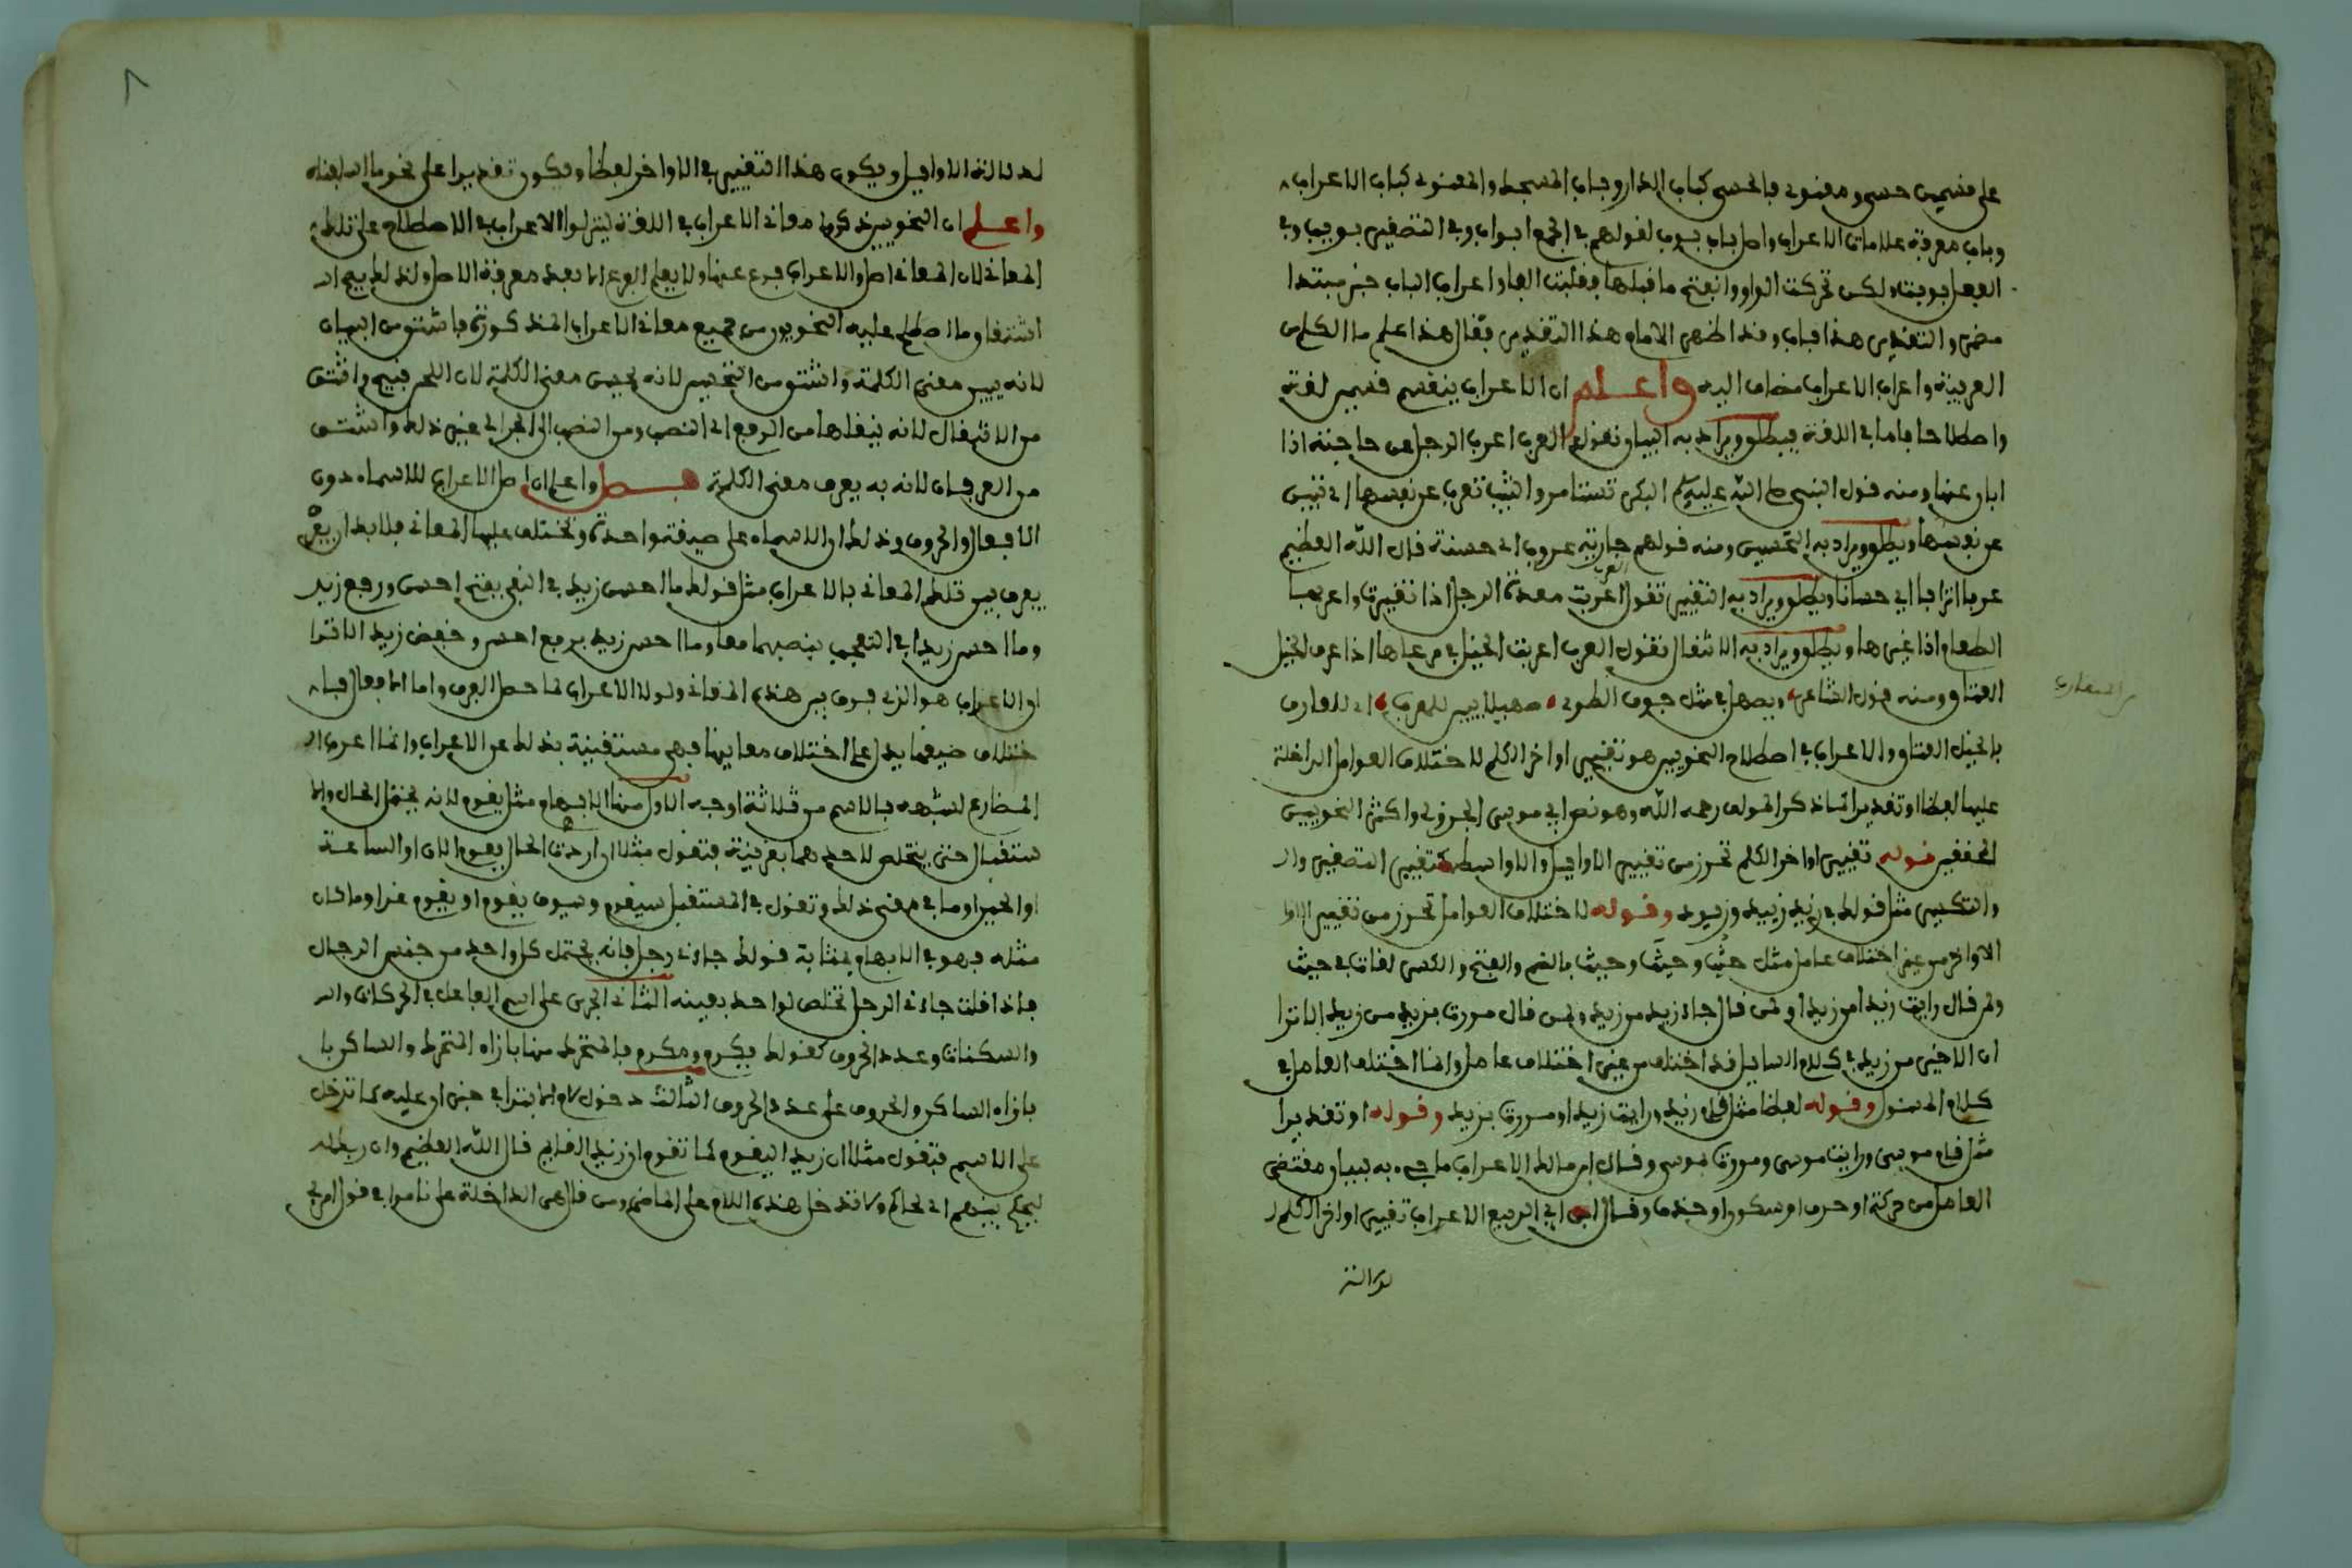 على قسمين حسي ومعنوي فالحسي كباب الدار وباب المسجد والمعنوي كباب الاعراب
وباب معرفة علامات الاعراب واصل باب بوب لقولهم في الجمع ابواب وفي التصغير بويب وفي
الفعل بوبت ولكن تحركت الواو وانفتح ما قبلها فقلبت الفا واعراب الباب خبر مبتدا
مضمر والتقدير هذا باب وقد اظهر الامام هذا التقدير فقال هذا علم ما الكلم من
العربية واعراب الاعراب مضاف اليه واعلم ان الاعراب ينقسم قسمين لغة
واصطلاحا فاما في اللغة فيطلق ويراد به البيان تقول العرب اعرب الرجل عن حاجته اذا
ابان عنها ومنه قول النبي صلى الله عليه وسلم البكر تستامر والثيب تعرب عن نفسها اي تبين
عن نفسها ويطلق ويراد به التحسين ومنه قولهم جارية عروب اي حسنة قال الله العظيم
عربا اترابا اي حسانا ويطلق ويراد به التغيير تقول العرب اعربت معدة الرجل اذا تغيرت واعربها
الطعام اذا غيرها ويطلق ويراد به الانتقال تقول العرب اعربت الخيل في مرعاها اذا عرف الخيل
العتاق ومنه قول الشاعر ويصهل في مثل جوف الطوي صهيلا يبين للمعرب اي للعارف
بالخيل العتاق والاعراب في اصطلاح النحويين هو تغيير اواخر الكلم لاختلاف العوامل الداخلة
عليها لفظا او تقديرا كما ذكر المولف رحمه الله وهو نص ابي موسى الجزولي واكثر النحويين
المحققين قوله تغيير اواخر الكلم تحرز من تغيير الاوايل والاواسط كتغيير التصغير وال
والتكسير مثل قولك في زيد زييد وزيود وقوله لاختلاف العوامل تحرز من تغيير الاوا
الاواخر من غير اختلاف عامل مثل حيث وحيث وحيث بالضم والفتح والكسر لغات في حيث
ولمن قال رايت زيدا من زيدا ولمن قال جاء زيد من زيد ولمن قال مررت بزيد من زيد الا ترا
ان الاخير من زيد في كلام السايل قد اختلف من غير اختلاف عامل وانما اختلف العامل في
كلام المسئول وقوله لفظا مثل قام زيد ورايت زيدا ومررت بزيد وقوله او تقديرا
مثل قام موسى ورايت موسى ومررت بموسى وقال ابن مالك الاعراب ما جيء به لبيان مقتضى
العامل من حركة او حرف او سكون او حذف وقال ابن ابي الربيع الاعراب تغيير اواخر الكلم ل
لدلالة
لدلالة الاوايل ويكون هذا التغيير في الاواخر لفظا ويكون تقديرا على نحو ما اسلفناه
واعلم ان النحويين ذكروا معاني الاعراب في اللغة لينزلوا الاعراب في الاصطلاح على تلك
المعاني لان المعاني اصل والاعراب فرع عنها ولا يعلم الفرع الا بعد معرفة الاصل ولذلك يصح ان
اشتقاق ما اصطلح عليه النحويون من جميع معاني الاعراب المذكورة فاشتق من البيان
لانه يبين معنى الكلمة واشتق من التحسين لانه يحسن معنى الكلمة لان اللحن قبيح واشتق
من الانتقال لانه ينقلها من الرفع الى النصب ومن النصب الى الجر الى غير ذلك واشتق
من العرفان لانه به يعرف معنى الكلمة فصل واعلم ان اصل الاعراب للاسماء دون
الافعال والحروف وذلك ان الاسماء على صيغة واحدة وتختلف عليها المعاني فلا بد ان يفر
يعرف بين تلك المعاني بالاعراب مثل قولك ما احسن زيد في النفي بفتح احسن ورفع زيد
وما احسن زيدا في التعجب بنصبهما معا وما احسن زيد برفع احسن وخفض زيد الا ترا
ان الاعراب هو الذي فرق بين هذه المعاني ولولا الاعراب لما حصل الفرق واما الافعال فبا
ختلاف صيغها يدل على اختلاف معانيها فهي مستغنية بذلك عن الاعراب وانما اعرب ال
المضارع لشبهه بالاسم من ثلاثة اوجه الاول منها الابهام مثل يقوم لانه يحتمل الحال والا
ستقبال حتى يتخلص لاحدهما بقرينة فتقول مثلا ان اردت الحال يقوم الان او الساعة
او الحين او ما في معنى ذلك وتقول في المستقبل سيقوم وسوف يقوم او يقوم غدا وما كان
مثله فهو في الابهام بمثابة قولك جاءني رجل فانه يحتمل كل واحد من جنس الرجال
فاذا قلت جاءني الرجل تخلص لواحد بعينه الثاني الجري على اسم الفاعل في الحركات وال
والسكنات وعدد الحروف كقولك يكرم ومكرم فالمتحرك منها بازاء المتحرك والساكن با
بازاء الساكن والحروف على عدد الحروف الثالث دخول لام الابتدا في خبر ان عليه كما تدخل
على الاسم فتقول مثلا ان زيدا ليقوم كما تقوم ان زيدا لقايم قال الله العظيم وان ربك
ليحكم بينهم اي لحاكم ولا تدخل هذه اللام على الماضي ومن قال هي الداخلة على نا مرا في قول امر